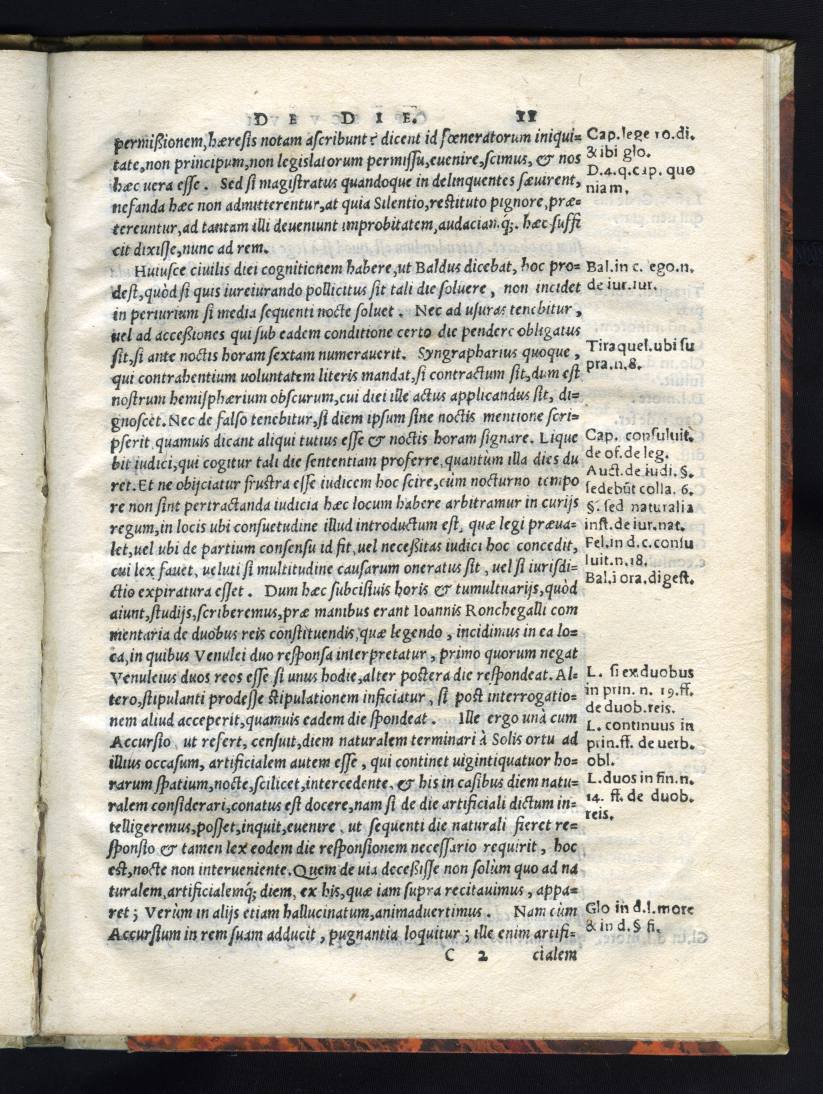 DE DIE. 11
permißionem, hæresis notam ascribunt? dicent id fœneratorum iniqui=
tate, non principum, non legislatorum permissu, euenire, scimus, & nos
hæc uera esse. Sed si magistratus quandoque in delinquentes sæuirent,
nefanda hæc non admitterentur, at quia Silentio, restituto pignore, præ=
tereuntur, ad tantam illi deueniunt improbitatem, audaciam.q́;. hæc suffi
cit dixisse, nunc ad rem.
Huiusce ciuilis diei cognitionem habere, ut Baldus dicebat, hoc pro=
dest, quòd si quis iureiurando pollicitus sit tali die soluere, non incidet
in periurium si media sequenti nocte soluet. Nec ad usuras tenebitur,
uel ad acceßiones qui sub eadem conditione certo die pendere obligatus
sit, si ante noctis horam sextam numerauerit. Syngrapharius quoque,
qui contrahentium uoluntatem literis mandat, si contractum sit, dum est
nostrum hemisphærium obscurum, cui diei ille actus applicandus sit, di=
gnoscet. Nec de falso tenebitur, si diem ipsum sine noctis mentione scri=
pserit, quamuis dicant aliqui tutius esse & noctis horam signare. Lique
bit iudici, qui cogitur tali die sententiam proferre, quantum illa dies du
ret. Et ne obijciatur frustra esse iudicem hoc scire, cùm nocturno tempo
re non sint pertractanda iudicia hæc locum habere arbitramur in curijs
regum, in locis ubi consuetudine illud introductum est, quæ legi præua=
let, uel ubi de partium consensu id fit, uel neceßitas iudici hoc concedit,
cui lex fauet, ueluti si multitudine causarum oneratus sit, uel si iurisdi=
ctio expiratura esset. Dum hæc subcisiuis horis & tumultuarijs, quòd
aiunt, studijs, scriberemus, præ manibus erant Ioannis Ronchegalli com
mentaria de duobus reis constituendis, quæ legendo, incidimus in ea lo=
ca, in quibus Venulei duo responsa interpretatur, primo quorum negat
Venuleius duos reos esse si unus hodie, alter postera die respondeat. Al=
tero, stipulanti prodesse stipulationem inficiatur, si post interrogatio=
nem aliud acceperit, quamuis eadem die spondeat. Ille ergo unà cum
Accursio, ut refert, censuit, diem naturalem terminari à Solis ortu ad
illius occasum, artificialem autem esse, qui continet uigintiquatuor ho=
rarum spatium, nocte, scilicet, intercedente, & his in casibus diem natu=
ralem considerari, conatus est docere, nam si de die artificiali dictum in=
telligeremus, posset, inquit, euenire, ut sequenti die naturali fieret re=
sponsio & tamen lex eodem die responsionem necessario requirit, hoc
est, nocte non interueniente. Quem de uia deceßisse non solùm quo ad na
turalem, artificialemq́; diem, ex his, quæ iam supra recitauimus, appa=
ret; Verùm in alijs etiam hallucinatum, animaduertimus. Nam cùm
Accursium in rem suam adducit, pugnantia loquitur; ille enim artifi=
C 2 cialem
Cap. lege 10. di.
& ibi glo.
D.4.q. cap. quo
niam.
Bal. in c. ego. n.
de iur. iur.
Tiraquel. ubi su
pra. n. 8.
Cap. consuluit.
de of. de leg.
Auct. de iudi. §.
sedebūt colla. 6.
§. sed naturalia
inst. de iur. nat.
Fel. in d. c. consu
luit. n. 18.
Bal. i ora. digest.
L. si ex duobus
in prin. n. 19. ff.
de duob. reis.
L. continuus in
prin. ff. de uerb.
obl.
L. duos in fin. n.
14. ff. de duob.
reis.
Glo in d. l. more
& in d. § fi.